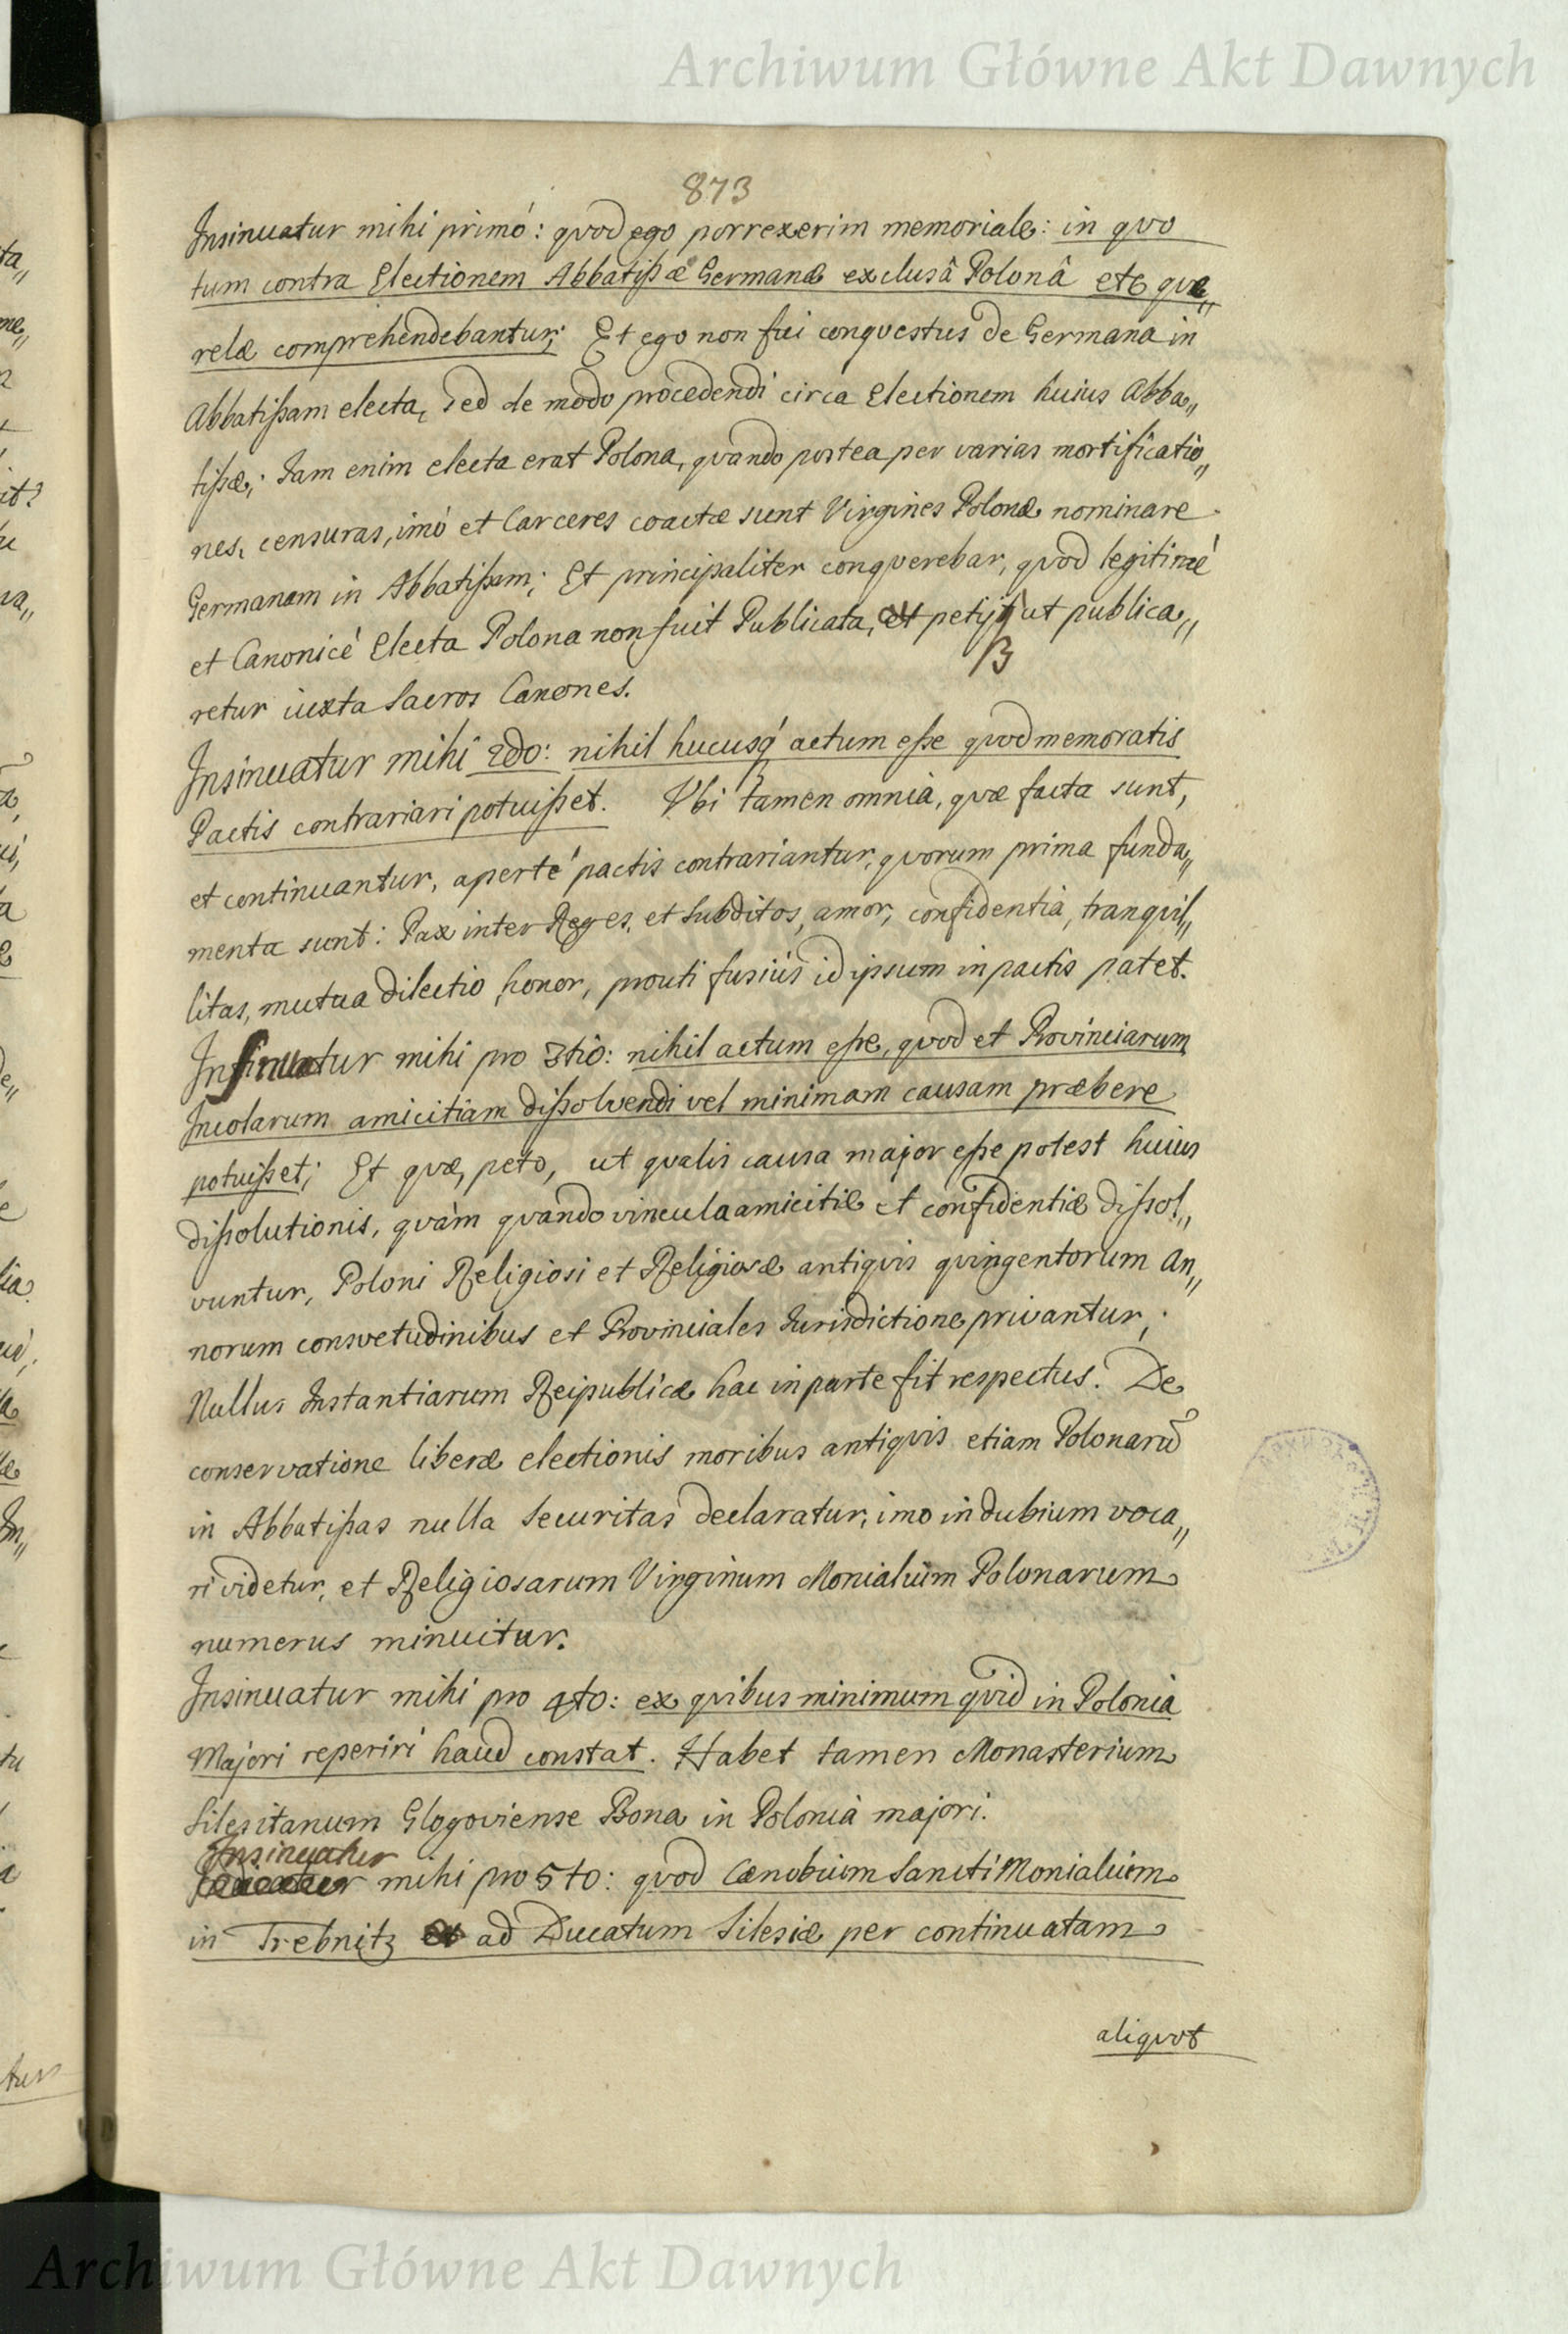 Archiwum Główne Akt Dawnych
873
Insinuatur mihi primó: quod ego porrexerim memoriale: in quo
tum contra Electionem Abbatißæ Germanæ exclusâ Polonâ etc quæ„
relæ comprehendebantur; Et ego non fui conquestus de Germana in
Abbatißam electa, sed de modo procedendi circa Electionem huius Abba„
tißæ; Jam enim electa erat Polona, quando postea per varias mortificatio„
nes, censuras, imó et Carceres coactæ sunt Virgines Polonæ nominare
Germanam in Abbatißam; Et principaliter conquerebar, quod legitimé
et Canonicé Electa Polona non fuit Publicata, et petij ut publica„
retur iuxta Sacros Canones.
Insinuatur mihi 2do: nihil hucusq́ actum eße quod memoratis
Pactis contrariari potuißet. Vbi tamen omnia, quæ facta sunt,
et continuantur, aperté pactis contrariantur, quorum prima funda„
menta sunt: Pax inter Reges, et Subditos, amor, confidentia, tranquil„
litas, mutua dilectio, honor, prouti fusiùs id ipsum in pactis patet.
Insinuatur mihi pro 3tio: nihil actum eße, quod et Provinciarum
Incolarum amicitiam dißolvendi vel minimam causam præbere
potuißet; Et quæ, peto, ut qualis causa major eße potest huius
dißolutionis, quàm quando vincula amicitiæ et confidentiæ dißol„
vuntur, Poloni Religiosi et Religiosæ antiquis quingentorum An„
norum consvetudinibus et Provinciales Jurisdictione privantur;
Nullus Instantiarum Reipublicæ hac in parte fit respectus. De
conservatione liberæ electionis moribus antiquis etiam Polonarū
in Abbatißas nulla Securitas declaratur, imo in dubium voca„
ri videtur, et Religiosarum Virginum Monialium Polonarum
numerus minuitur.
Insinuatur mihi pro 4to: ex quibus minimum quid in Polonia
Majori reperiri haud constat. Habet tamen Monasterium
Silesitanum Glogoviense Bona in Polonia majori.
Insinuatur
mihi pro 5to: quod Cænobium Sancti Monialium
in Trebnitz ad Ducatum Silesiæ per continuatam
aliquot
Archiwum Główne Akt Dawnych